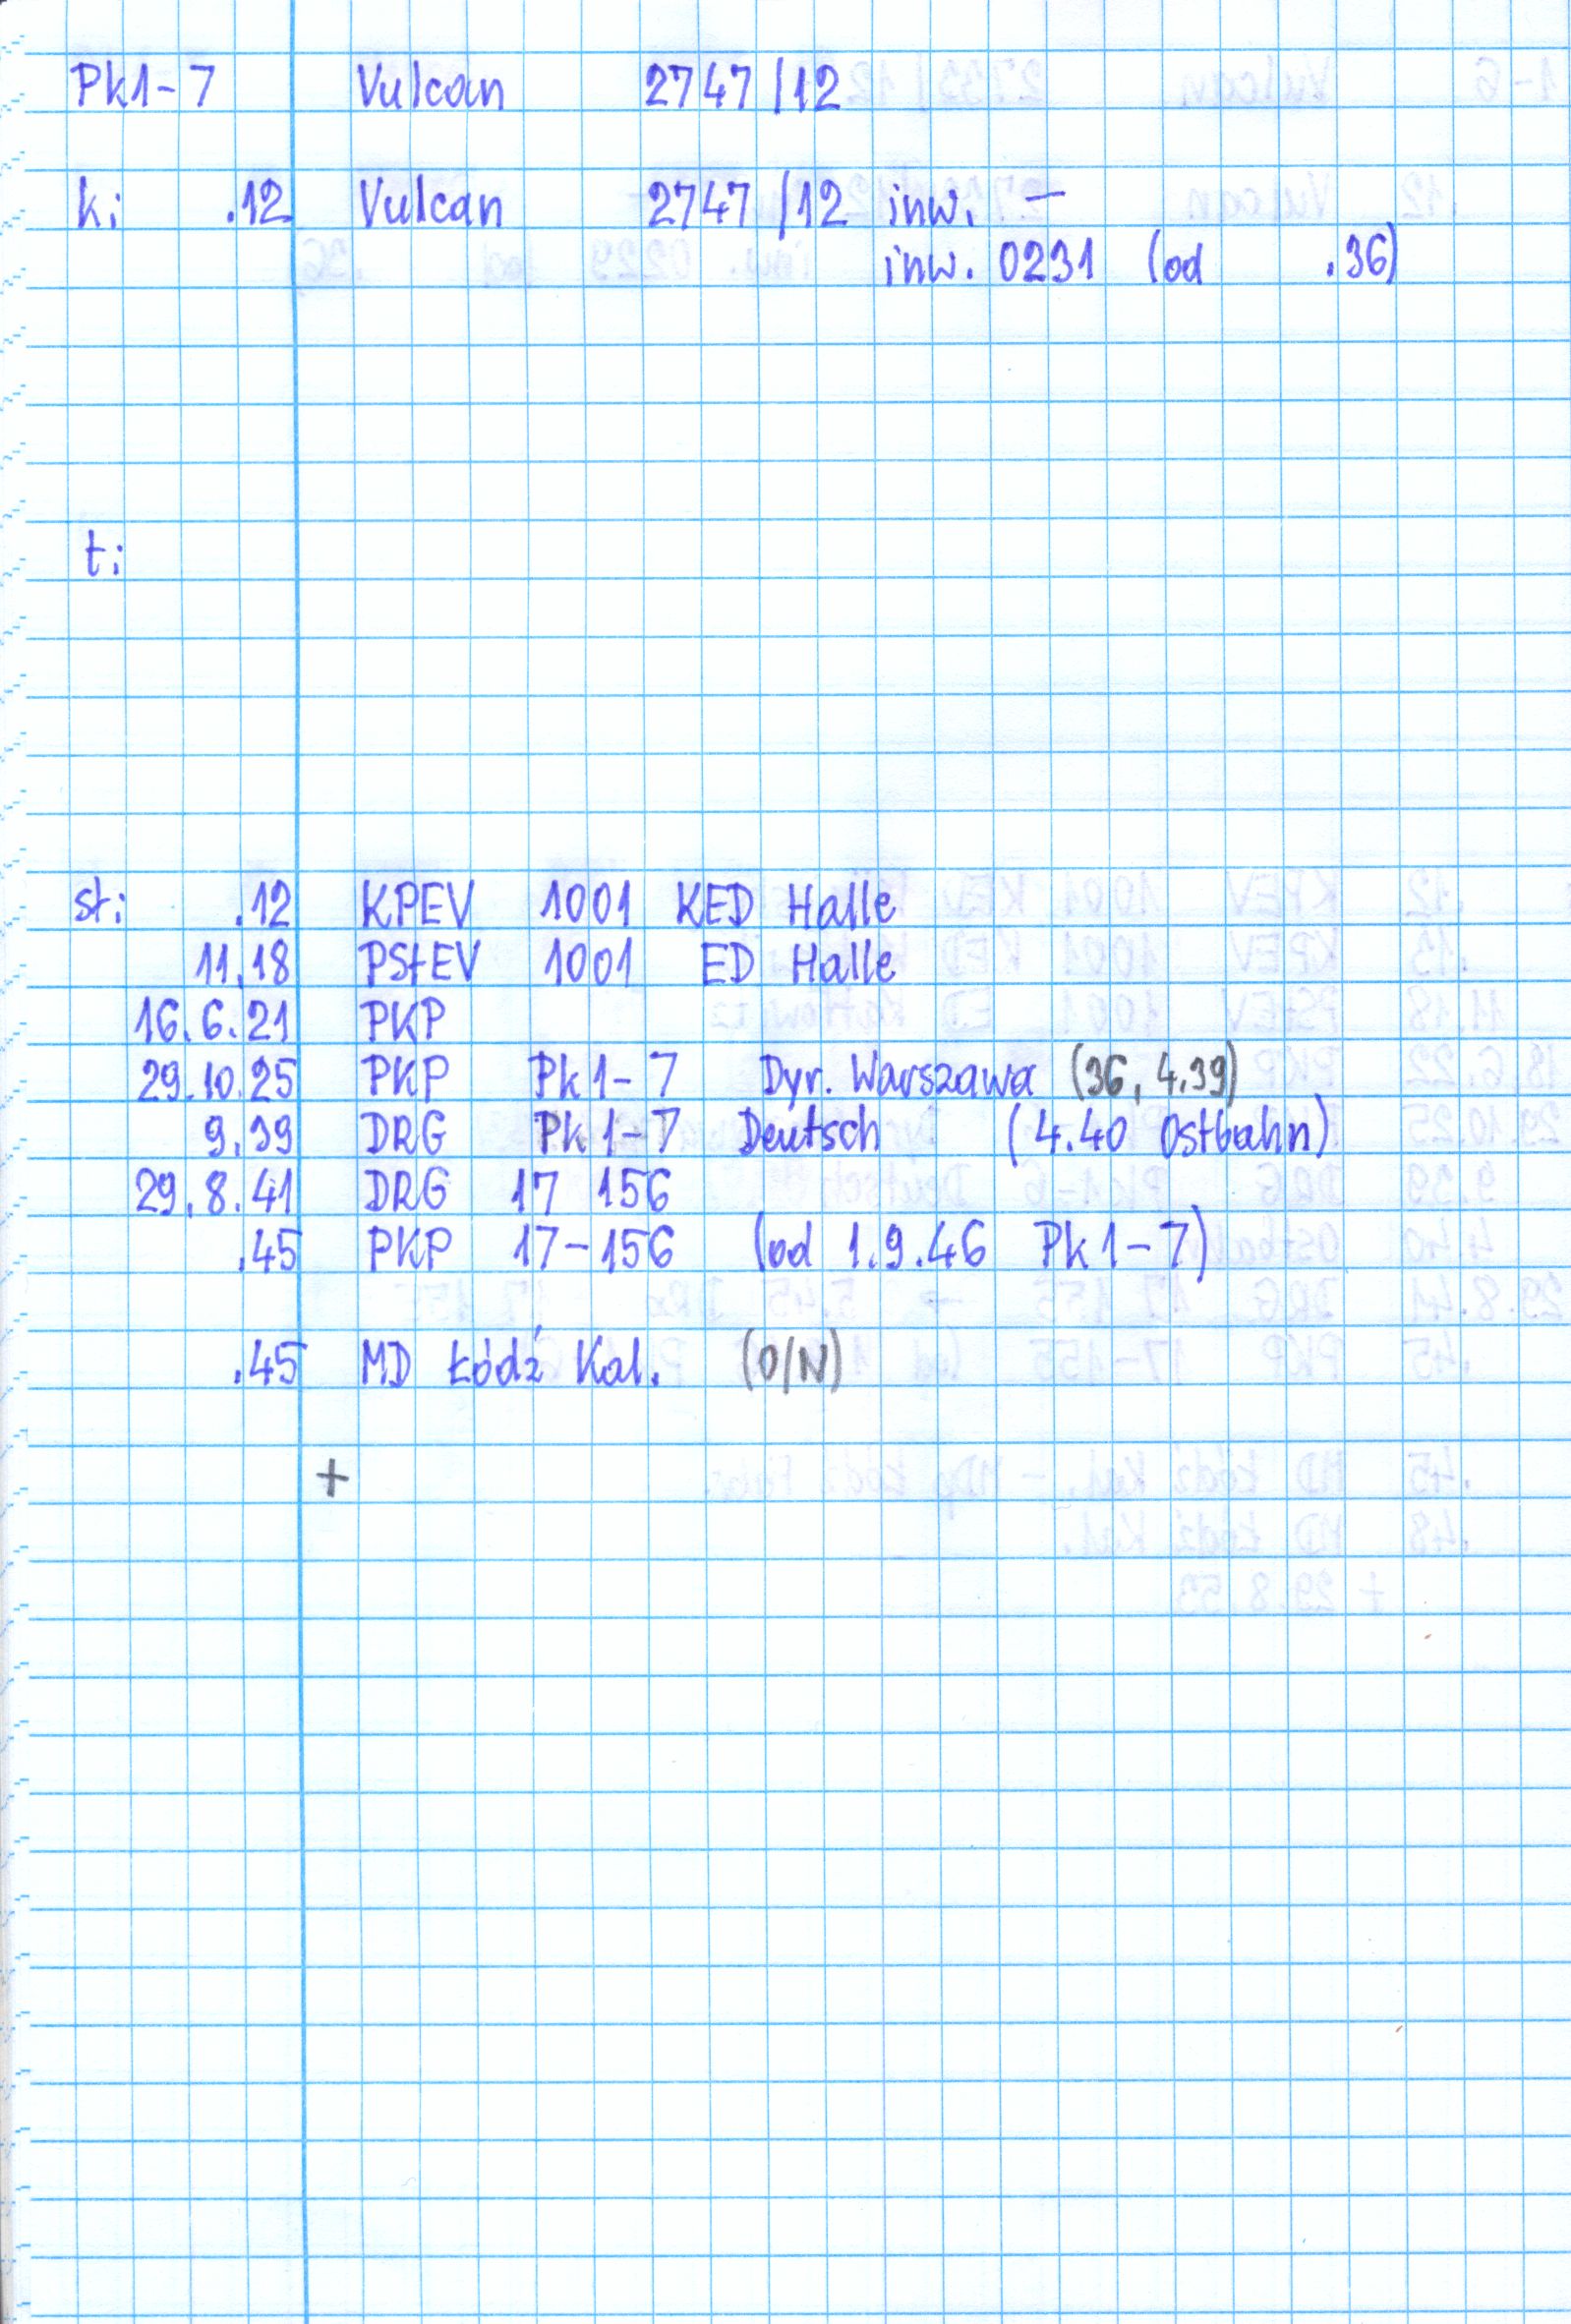 Pk1-7 Vulcan 2747/12
k: .12 Vulcan 2747/12 inw. —
inw. 0231 (od .36)
t:
st: .12 KPEV 1001 KED Halle
11.18 PStEV 1001 ED Halle
16.6.21 PKP
29.10.25 PKP Pk1-7 Dyr. Warszawa (36, 4.39)
9.39 DRG Pk1-7 Deutsch (4.40 Ostbahn)
29.8.41 DRG 17 156
.45 PKP 17-156 (od 1.9.46 Pk1-7)
.45 MD Łódź Kal. (O/N)
+